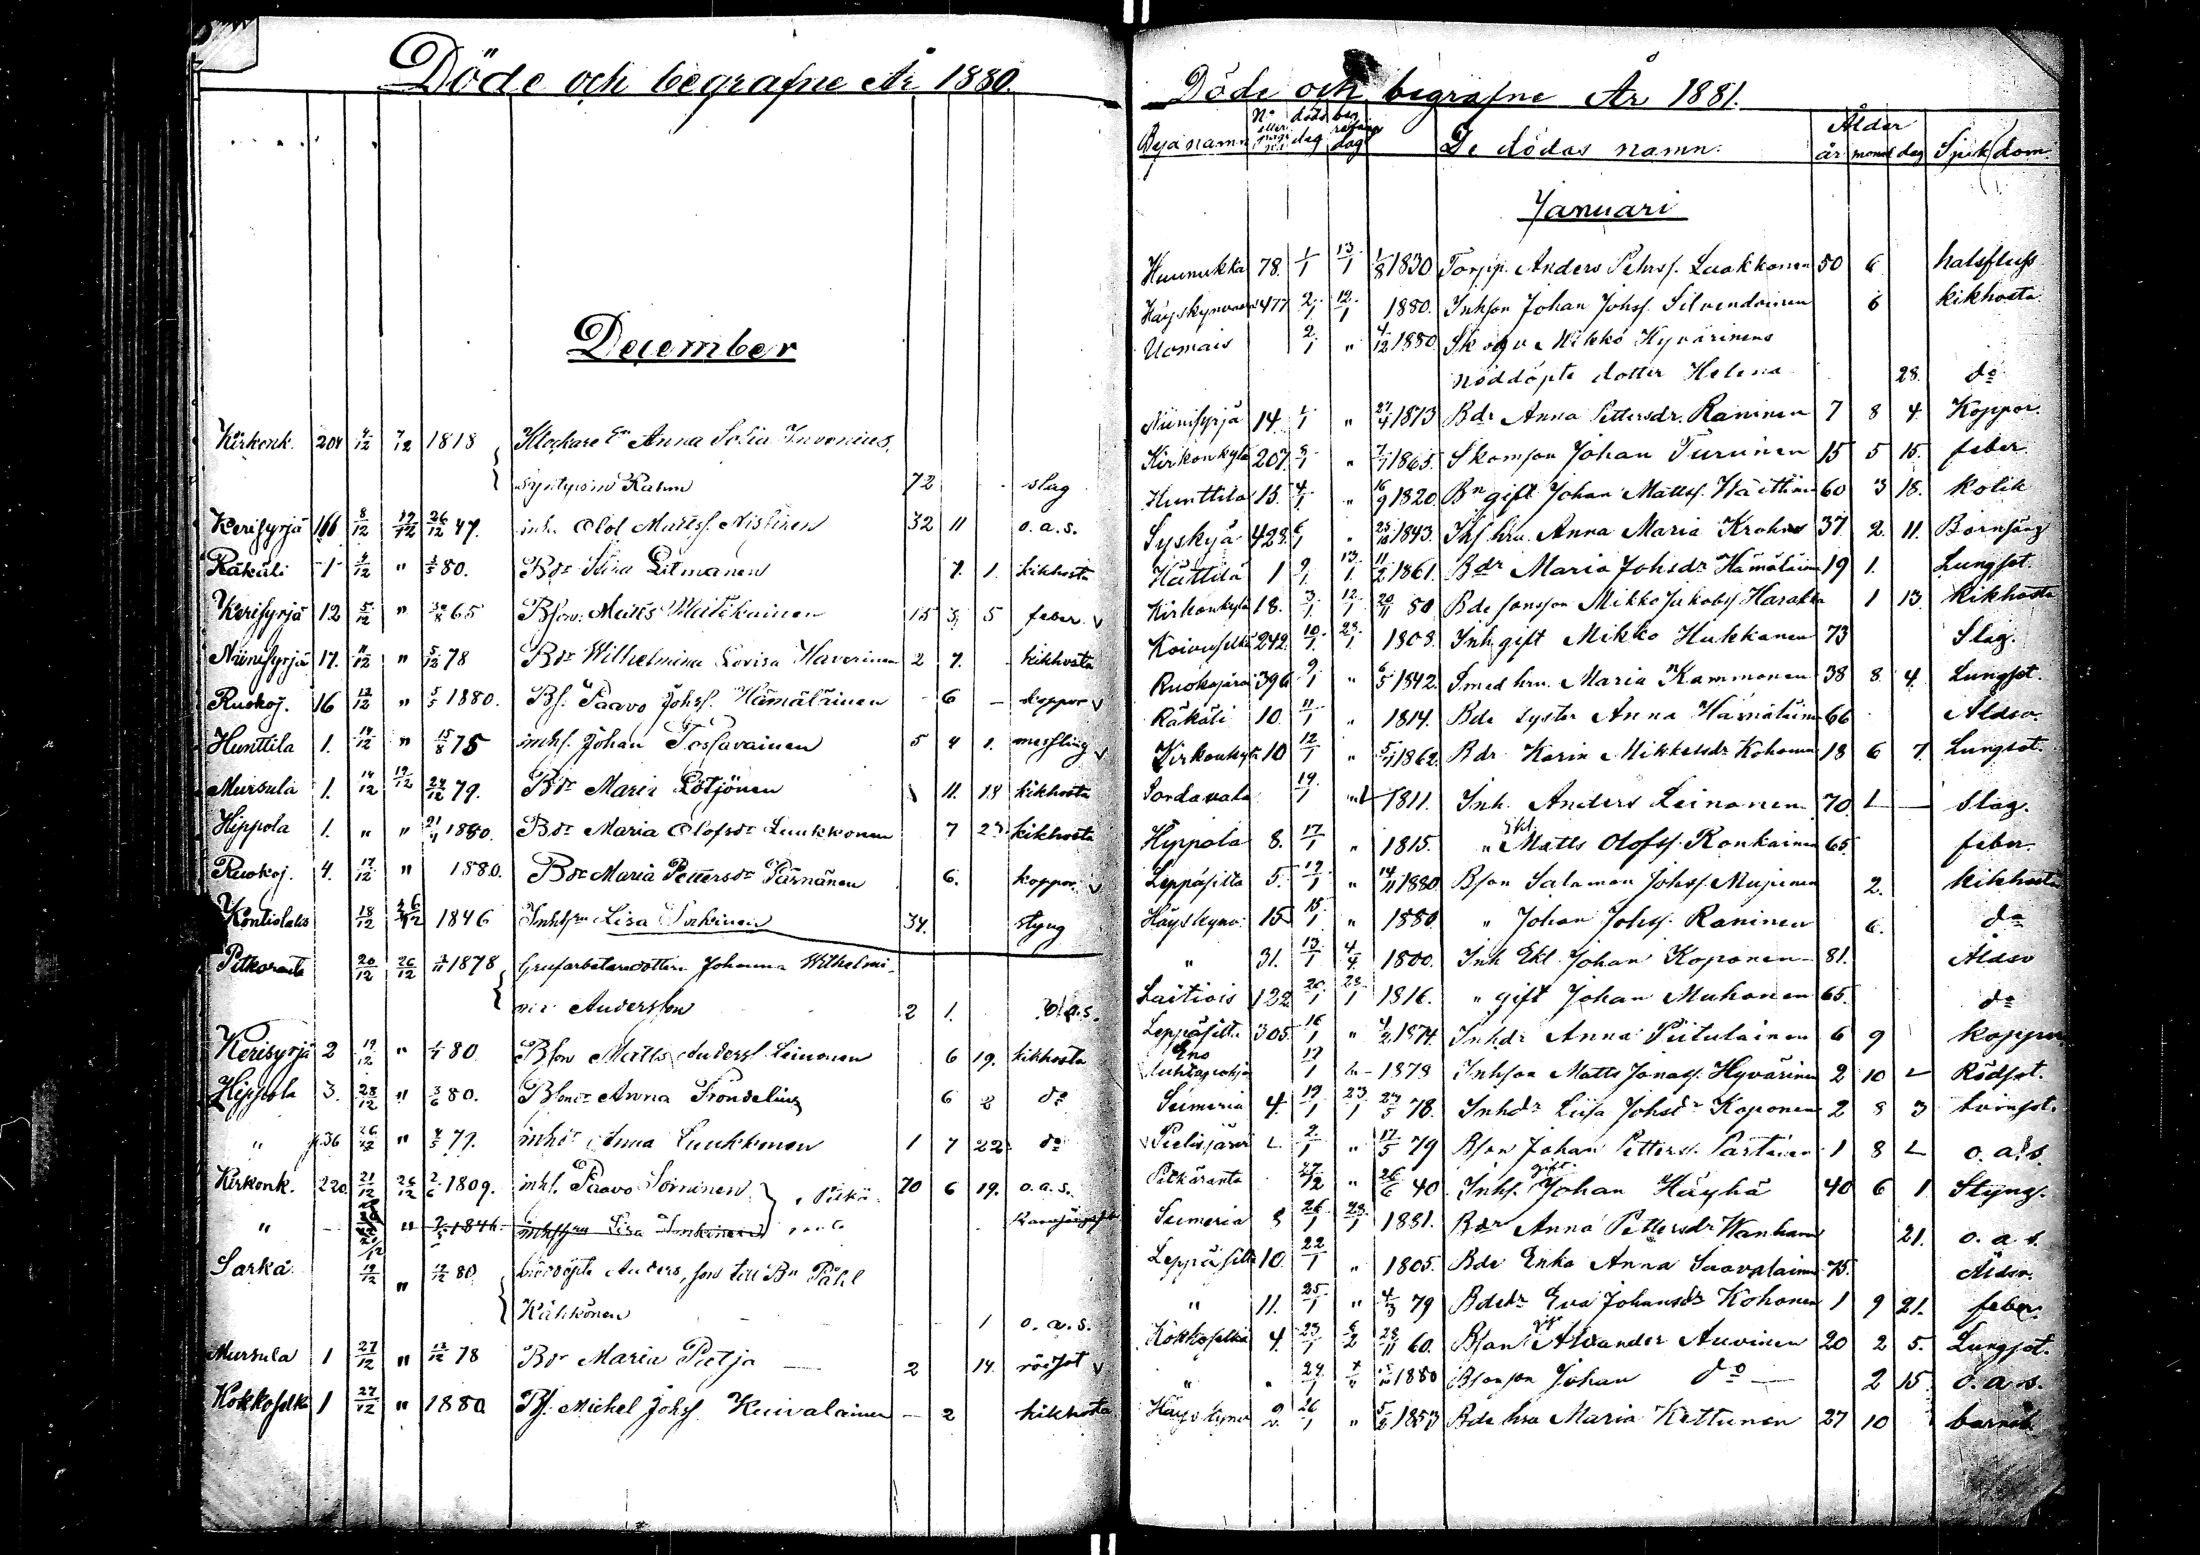 Döde och begrafne År 1880.
December
Kirkonk. 204 4/12 7/12 1818 Klockare Anna Sofia Invenius,
72 slag
Kerisyrjä 166 8/12 19/12 26/12 47. inh. Olof Mattss. 32 11 o.a.s.
Räkäli 1 4/12 " 80. Bdr Stina Litmanen 7. 1. kikhosta
Kerisyrjä 12 5/12 " 65 Bson. Matts 15 3 5 feber v
Niinisyrjä 17. 11/12 " 5/12 78 Bdr Wilhelmina Lovisa Haverinen 2 7. kikhosta
Ruokoj. 16 12/12 " 5/5 1880. Bs. Paavo Johss. Hämäläinen - 6 - koppor v
Hunttila 1. 14/12 " 15/8 75 inhs. Johan Tossavainen 5 4 1. messling v
Mursula 1. 14/12 19/12 24/12 79. Bdr Maria Pötjönen 11. 18 kikhosta
Hippola 1. " " 21/4 1880. Bdr Maria Olofsdr Luukkonen 7 23 kikhosta
Ruokoj. 4. 17/12 " 1880. Bdr Maria Pettersdr Pärnänen 6. koppor v
Kontiolaks 18/12 26/12 1846 Inhs Lisa 34. styng
Pitkäranta 20/12 26/12 1878 Grufarbetaredottern Johanna Wilhelmi-
na Andersson 2 1. o.a.s.
Kerisyrjä 2 19/12 " 80. Bson Matts Anderss. Leinonen 6 19. kikhosta
Hippola 3. 28/12 " 3/6 80. Anna Frondelius 6 2 do
" p.36 26/12 " 4/5 79. inhdr Anna Luukkonen 1 7 22 do
Kirkonk. 220. 21/12 26/12 2/6 1809. inhs. Paavo Soininen 70 6 19. o.a.s.
" - " 1846 inhs Lisa
Sarka 19/12 " 19/12 80 nöddöpte Anders, son till Bn Påhl
Kähkönen 1 o.a.s.
Mursula 1 27/12 " 13/12 78 Bdr Maria Pietja 2 14. rödsot v
Kokkoselkä 1 27/12 " 1880 Bs. Michel Johss. Kuivalainen - 2 kikhosta
Döde och begrafne År 1881.
Byanamn No eller dag dag De dödas namn. Ålder år månad dag Sjukdom.
Januari
Huunukka 78. 1/1 13/1 1/8 1830 Torpp. Anders Pehrss. Laakkonen 50 6 halsfluss
477 2/1 12/1 1880. Inhson Johan Johss. Silvendoinen 6 kikhosta
Uomais 2/1 " 4/12 1880 Mikko Hyvärinens
nöddöpte dotter Helena 28. do
Niinisyrjä 14 1/1 " 27/4 1873 Bdr Anna Pettersdr. Raninen 7 8 4 Koppor.
Kirkonkylä 207. " 1865. Skomson Johan Turunen 15 5 15. feber
Hunttila 15. 4/1 " 16/9 1820 Bn gift Johan Mattss. Wäittinen 60 3 18. kolik
Syskyä 428. 6/1 " 25/10 1843. Ihs hru. Anna Maria Krohns 37 2. 11. Barnsäng
Hättilä 1 9/1 13/1 11/2 1861. Bdr Maria Johsdr Hämäläinen 19 1. Lungsot.
Kirkonkylä 18. 3/1 12/1 20/11 80 Bde sonson Mikko Jakobss Harakka 1 13. kikhosta
Koivuselkä 242. 10/1 23/1 1808. Inh gift Mikko Hukkanen 73 Slag.
Ruokojärvi 396 9/1 " 6/5 1842. Smed hru. Maria Kammonen 38 8. 4. Lungsot.
Räkäli 10. 11/1 " 1814. Bde syster Anna Hämäläinen 66 Ålder.
Kirkonkylä 10 12/1 " 5/1862. Bdr Karin Mikkelsdr Kohonen 18 6 7. Lungsot.
Sordavala 19/1 1811. Inh. Anders Leinonen 70. - - Slag.
Hippola 8. 17/1 " 1815. " Ekl Matts Olofss. Ronkainen 65. feber.
Leppäsilta 5. 19/1 " 14/11 1880 Bson Salamon Johss. Mujunen 2. kikhosta
15 15/1 " 1880 " Johan Johss. Raninen 6. do
" 31. 13/1 4/4 1800. Inh Ekl. Johan Koponen 81. Ålder
Laitiois 122 20/1 23/1 1816. " gift Johan Muhonen 65. do
Leppäsilta 305. 16/1 " 4/2 1874. Inhdr Anna Piitulainen 6 9 koppor
Eno 17/1 1878 Inhson Matts Jonass. Hyvärinen 2 10 - Rödsot.
Sumeria 4. 19/1 23/1 27/5 78. Inhdr Liisa Johsdr Koponen 2 8 3 tvinsot.
Pielisjärvi - 2/1 " 17/5 79 Bson Johan Petterss. Partanen 1 8 - o.a.s.
Pitkäranta 27/12 " 26/6 40. Inhs. gift Johan Häyhä 40 6 1 Styng.
Sumeria 8 26/1 23/1 1881. Bdr Anna Pettersdr Wanhanen 21. o.a.s.
Leppäsilta 10. 22/1 " 1805. Bde Enka Anna Saavalainen 75. Ålder.
" 11. 25/1 " 4/3 79 Eva Johansdr Kohonen 1 9 21. feber.
Kokkoselkä 4. 23/1 6/2 28/11 60. Bson gift Alexander Auvinen 20 2 5. Lungsot.
" " 24/1 1880 Bsonson Johan do - 2 15. o.a.s.
2. 26/1 " 5/6 1853 Bde hra Maria Kettunen 27 10